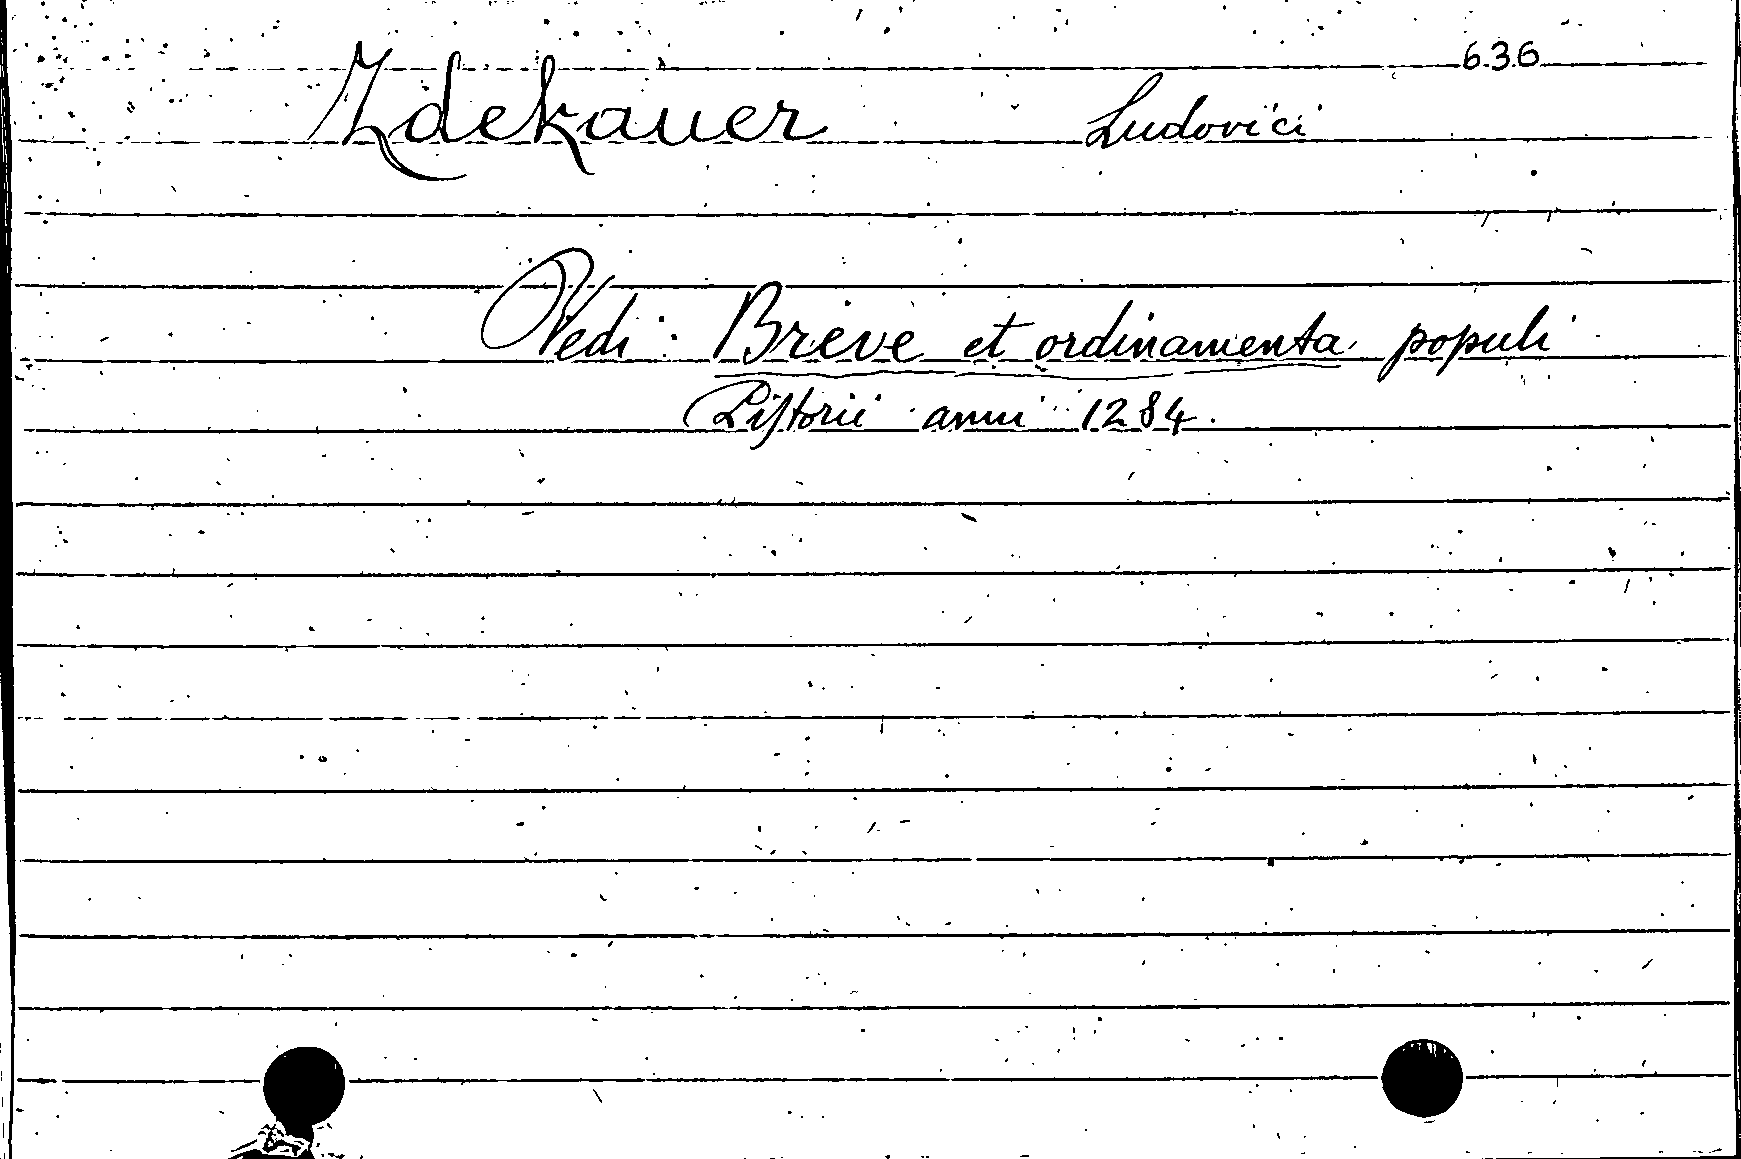 636
Zdekauer Ludovici
Vedi: Breve et ordinamenta populi
Pistorii anni 1284.